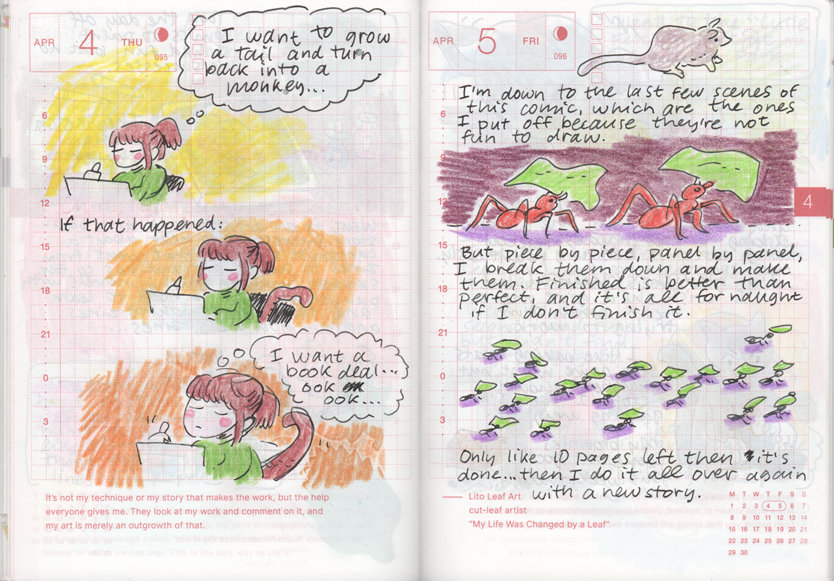 APR 4 THU
095
I want to grow
a tail and turn
back into a
monkey...
6
9
12
If that happened:
15
18
21
I want a
book deal...
ook
ook...
0
3
It's not my technique or my story that makes the work, but the help
everyone gives me. They look at my work and comment on it, and
my art is merely an outgrowth of that.
APR 5 FRI
096
I'm down to the last few scenes of
this comic, which are the ones
I put off because they're not
fun to draw.
6
9
12
4
15
But piece by piece, panel by panel,
I break them down and make
them. Finished is better than
perfect, and it's all for naught
if I don't finish it.
18
21
0
3
Only like 10 pages left then it's
done...then I do it all over again
with a new story.
Lito Leaf Art
cut-leaf artist
"My Life Was Changed by a Leaf"
M T W T F S S
1 2 3 4 5 6 7
8 9 10 11 12 13 14
15 16 17 18 19 20 21
22 23 24 25 26 27 28
29 30